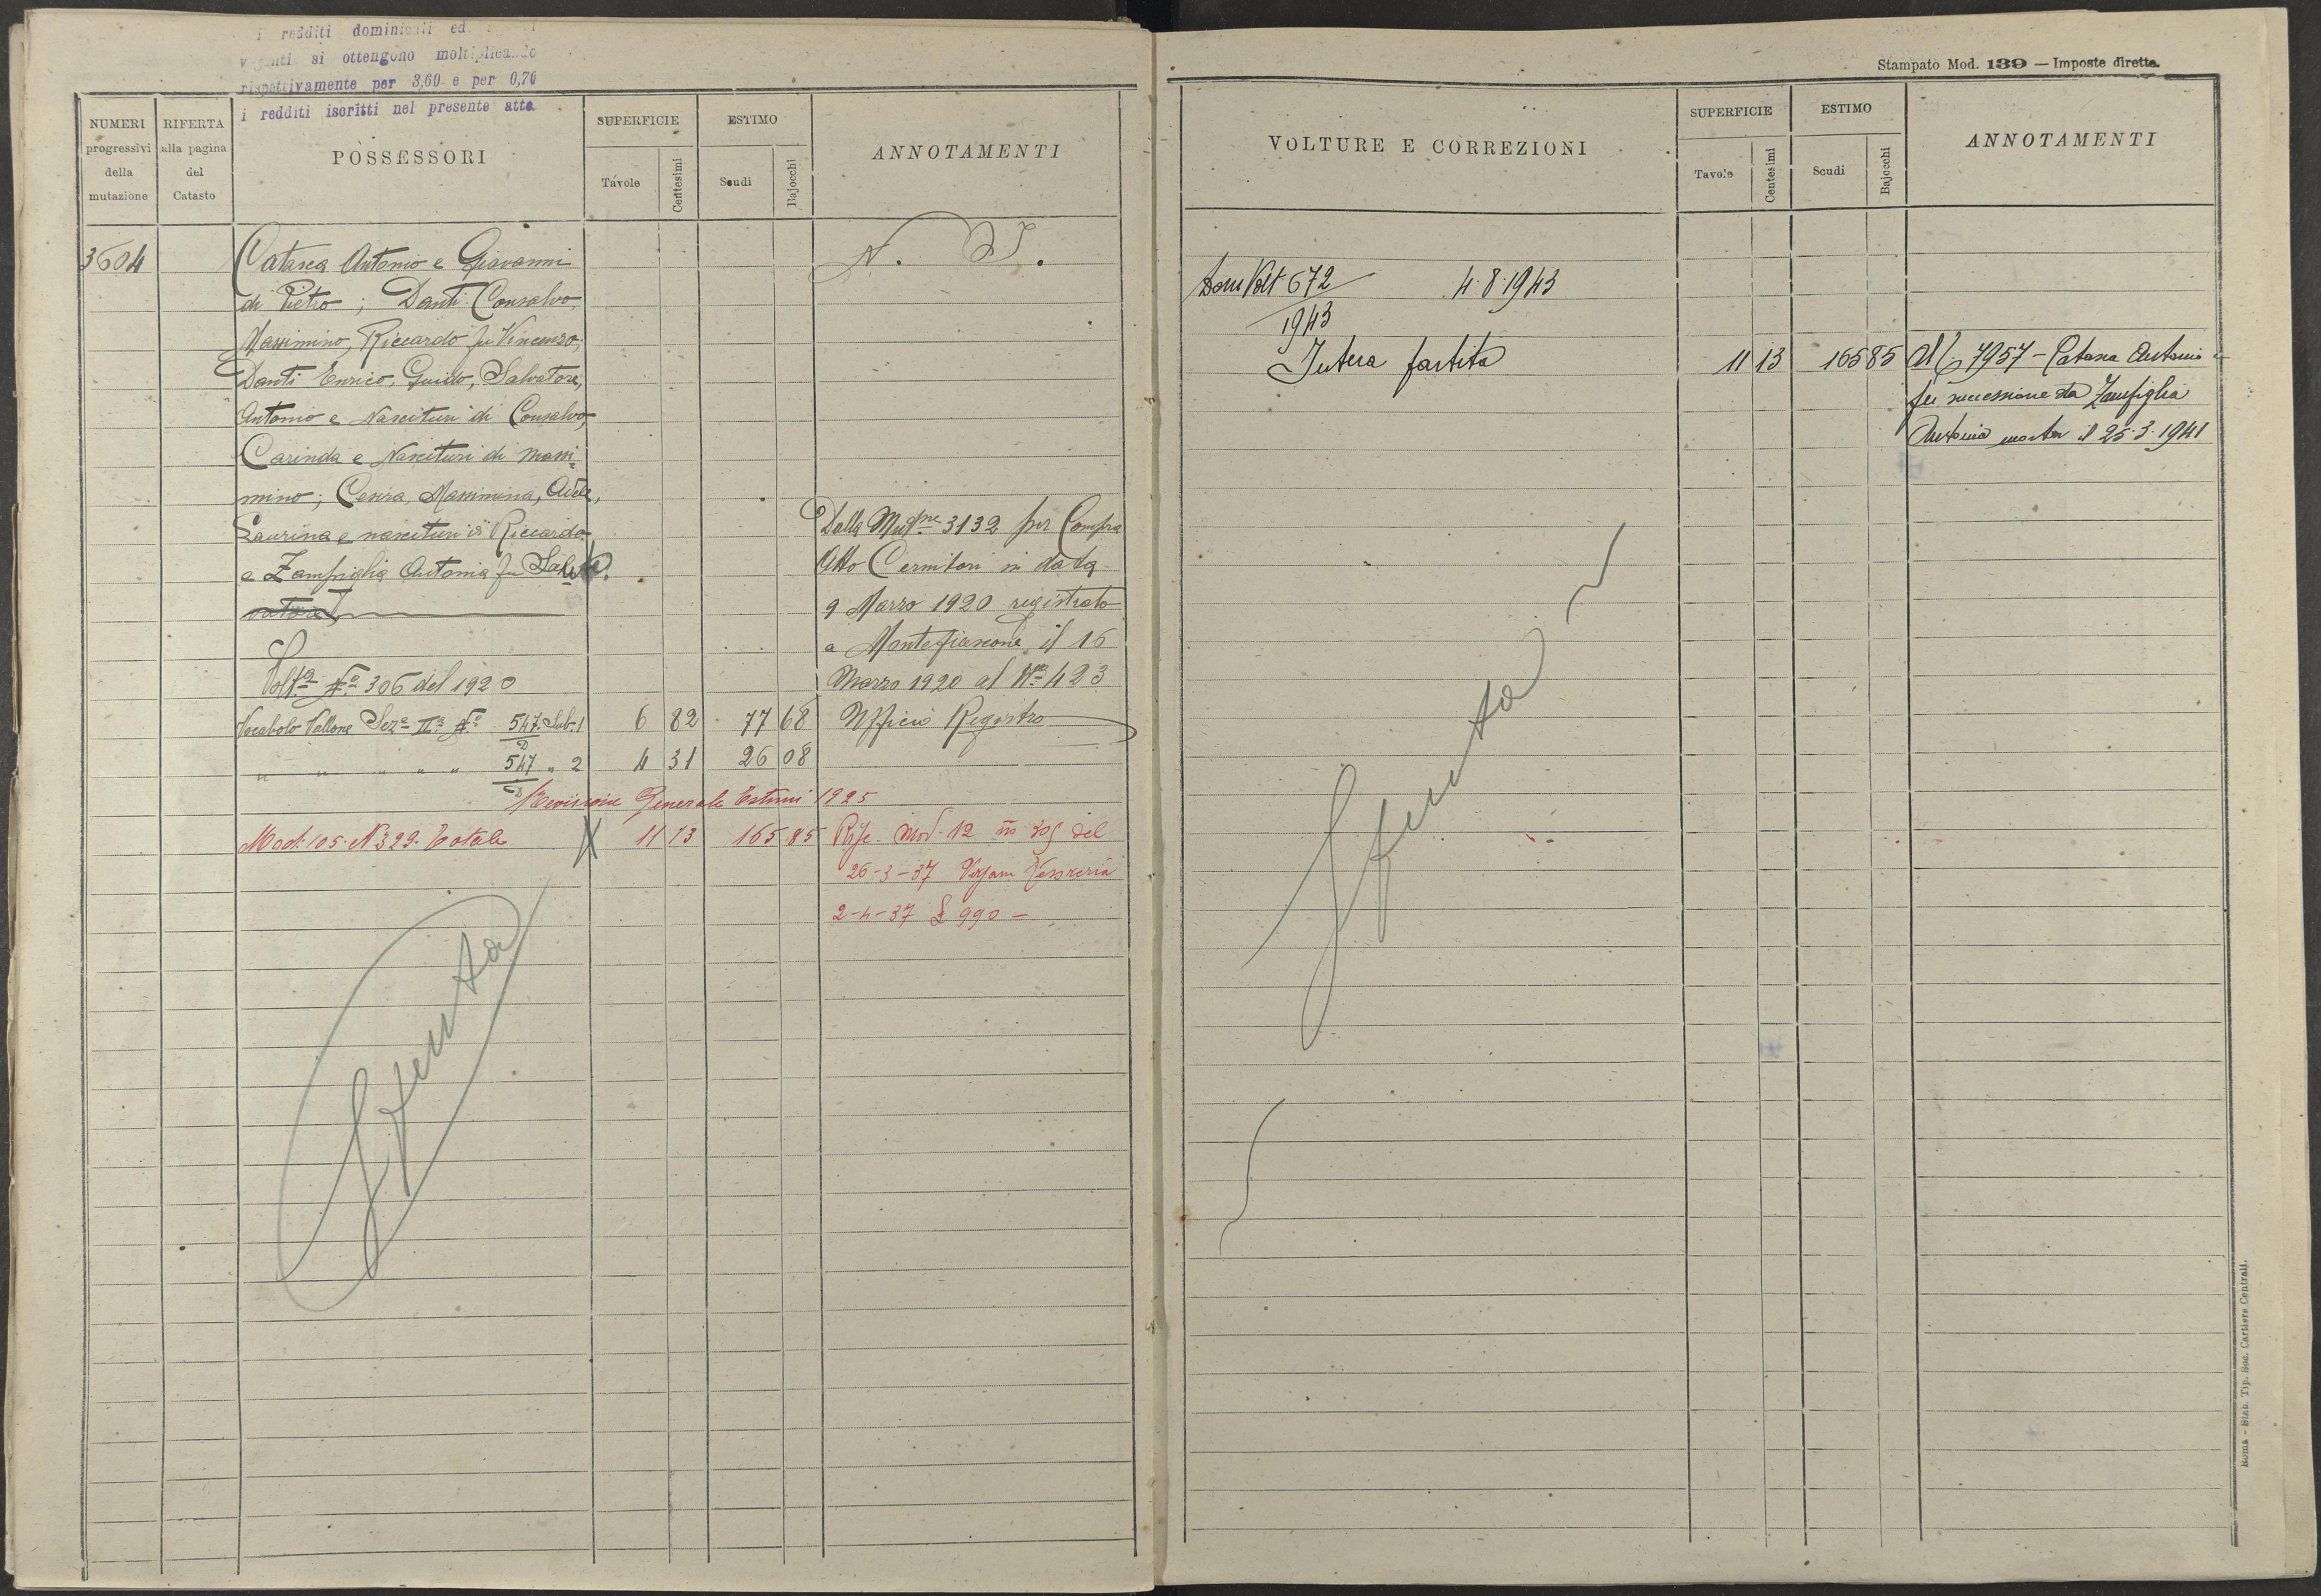 i redditi dominicali ed
si ottengono moltiplicando
rispettivamente per 3,60 e per 0,70
i redditi iscritti nel presente atto.
NUMERI progressivi della mutazione
RIFERTA alla pagina del Catasto
POSSESSORI
SUPERFICIE
Tavole
Centesimi
ESTIMO
Scudi
Bajocchi
ANNOTAMENTI
3604
Catasca Antonio e Giovanni
di Pietro; Danti Consalvo
Massimino, Riccardo fu Vincenzo;
Danti Enrico, Guido, Salvatore,
Antonio e Nascituri di Consalvo,
Carinda e Nascituri di Massi=
mino; Cesira, Massimina, Adele,
Laurina e nascituri di Riccardo
e Zampiglia Antonia fu
N.
Dalla 3132 per Compra
Atto Cernitori in data
9 Marzo 1920 registrato
a Montefiascone il 16
Marzo 1920 al N° 423
Ufficio Registro
Volta N° 306 del 1920
Vocabolo Vallone Seza IIa N° 547 Sub. 1 6 82 77 68
" " " " " 547 " 2 4 31 26 08
Revisione Generale Estimi 1925
Mod. 105. N. 329. Totale 11 13 165 85
Mod. 12 del
26-3-37
2-4-37 £ 990 -
Stampato Mod. 139 — Imposte dirette.
VOLTURE E CORREZIONI
SUPERFICIE
Tavole
Centesimi
ESTIMO
Scudi
Bajocchi
ANNOTAMENTI
Volt 672 4.8.1943
1943
Intera partita 11 13 165 85
7957 - Catasca Antonio
successione da Zampiglia
Antonia morta il 25.3.1941
Roma - Stab. Tip. Soc. Cartiere Centrali.